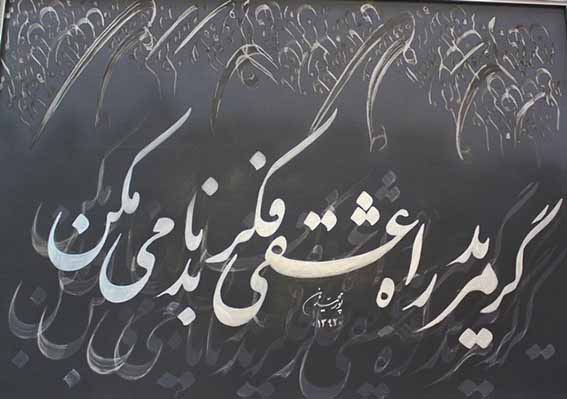 گر مرید راه عشقی فکر بدنامی مکن
۱۳۹۲